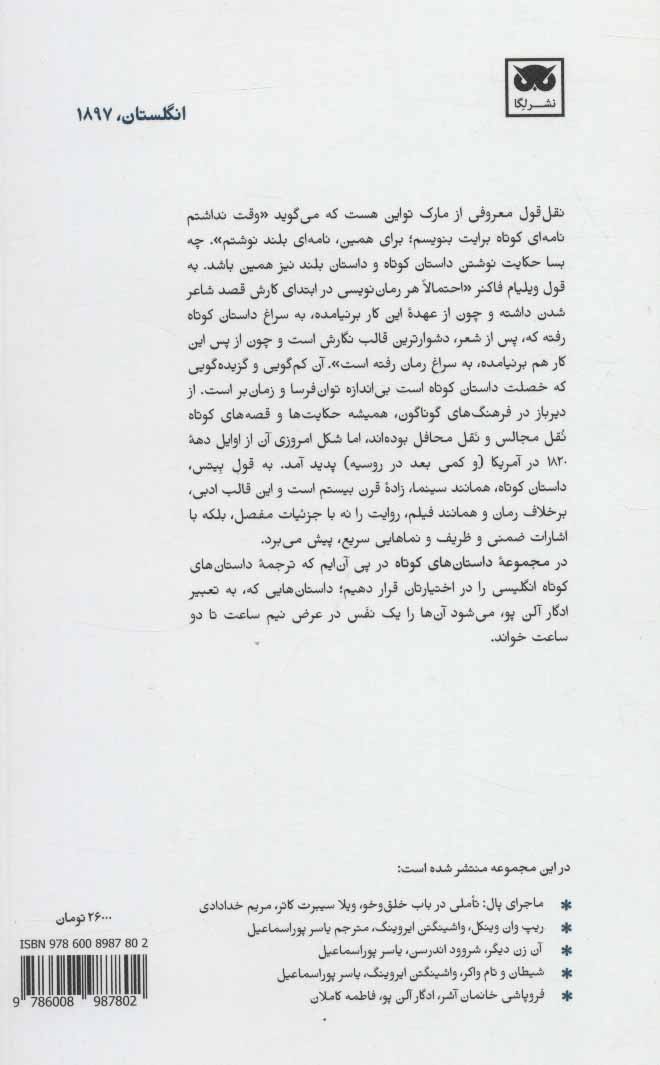 نشر لگا
انگلستان، ۱۸۹۷
نقل‌قول معروفی از مارک تواین هست که می‌گوید «وقت نداشتم
نامه‌ای کوتاه برایت بنویسم؛ برای همین، نامه‌ای بلند نوشتم». چه
بسا حکایت نوشتن داستان کوتاه و داستان بلند نیز همین باشد. به
قول ویلیام فاکنر «احتمالاً هر رمان‌نویسی در ابتدای کارش قصد شاعر
شدن داشته و چون از عهدهٔ این کار برنیامده، به سراغ داستان کوتاه
رفته که، پس از شعر، دشوارترین قالب نگارش است و چون از پس این
کار هم برنیامده، به سراغ رمان رفته است». آن کم‌گویی و گزیده‌گویی
که خصلت داستان کوتاه است بی‌اندازه توان‌فرسا و زمان‌بر است. از
دیرباز در فرهنگ‌های گوناگون، همیشه حکایت‌ها و قصه‌های کوتاه
نُقل مجالس و نَقل محافل بوده‌اند، اما شکل امروزی آن از اوایل دههٔ
۱۸۲۰ در آمریکا (و کمی بعد در روسیه) پدید آمد. به قولِ بِیتس،
داستان کوتاه، همانند سینما، زادهٔ قرن بیستم است و این قالب ادبی،
برخلاف رمان و همانند فیلم، روایت را نه با جزئیات مفصل، بلکه با
اشارات ضمنی و ظریف و نماهایی سریع، پیش می‌برد.
در مجموعهٔ داستان‌های کوتاه در پی آن‌ایم که ترجمهٔ داستان‌های
کوتاه انگلیسی را در اختیارتان قرار دهیم؛ داستان‌هایی که، به تعبیر
ادگار آلن پو، می‌شود آن‌ها را یک نفَس در عرض نیم ساعت تا دو
ساعت خواند.
در این مجموعه منتشر شده است:
* ماجرای پال: تأملی در باب خلق‌وخو، ویلا سیبرت کاتر، مریم خدادادی
* ریپ وان وینکل، واشینگتن ایروینگ، مترجم یاسر پوراسماعیل
* آن زن دیگر، شروود اندرسن، یاسر پوراسماعیل
* شیطان و تام واکر، واشینگتن ایروینگ، یاسر پوراسماعیل
* فروپاشی خانمان آشر، ادگار آلن پو، فاطمه کاملان
۲۶۰۰۰ تومان
ISBN 978 600 8987 80 2
9 786008 987802